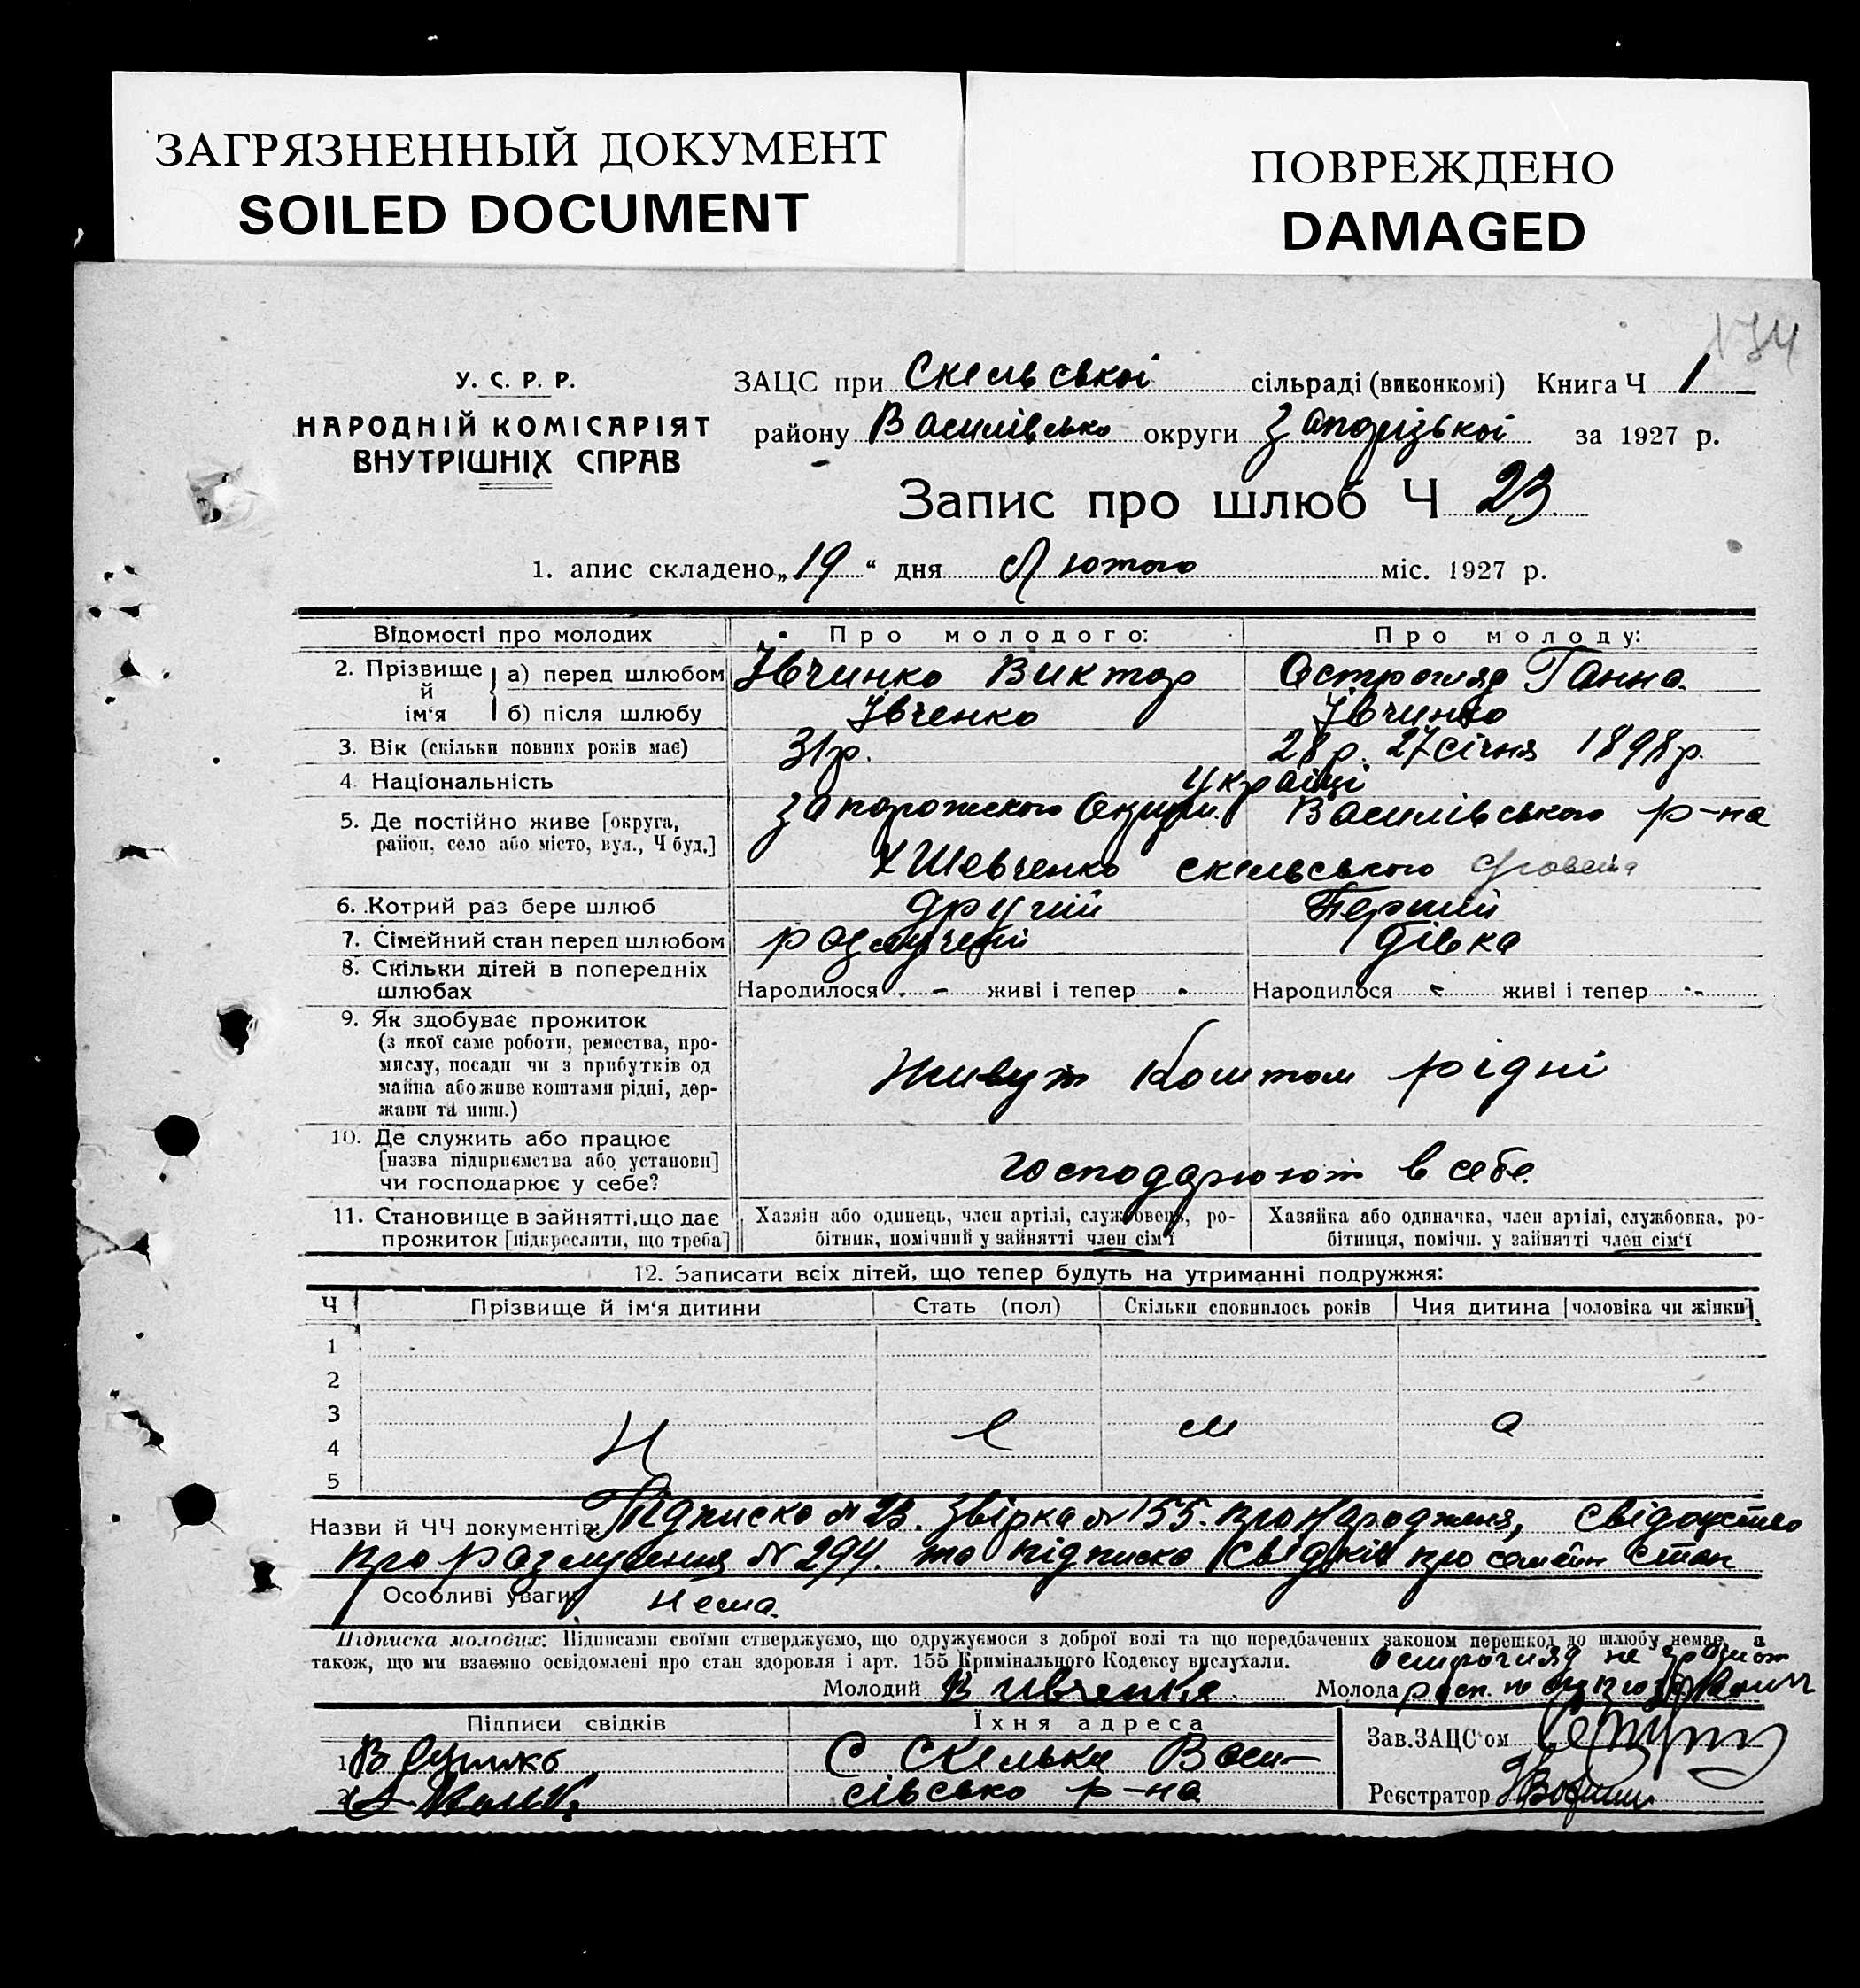 ЗАГРЯЗНЕННЫЙ ДОКУМЕНТ
SOILED DOCUMENT
ПОВРЕЖДЕНО
DAMAGED
134
У. С. Р. Р.
НАРОДНІЙ КОМІСАРІЯТ
ВНУТРІШНІХ СПРАВ
ЗАЦС при Скельської сільраді (виконкомі) Книга Ч 1
району Василівсько округи Запорізької за 1927 р.
Запис про шлюб Ч 23
1. апис складено „19“ дня Лютого міс. 1927 р.
Відомості про молодих Про молодого: Про молоду:
2. Прізвище й ім'я а) перед шлюбом Івчинко Виктор Остроогляд Ганна
б) після шлюбу Івченко Івчинко
3. Вік (скільки повних років має) 31р. 28р. 27 січня 1898р.
4. Національність українці
5. Де постійно живе [округа, район, село або місто, вул., Ч буд.] Запорожского Округи. Василівського р-на
Х Шевченко Скельського
6. Котрий раз бере шлюб другий Перший
7. Сімейний стан перед шлюбом розлучений дівка
8. Скільки дітей в попередніх шлюбах Народилося - живі і тепер - Народилося - живі і тепер -
9. Як здобуває прожиток
(з якої саме роботи, ремества, про-
мислу, посади чи з прибутків од
майна або живе коштами рідні, дер-
жави та инш.)
Живут Коштом рідні
10. Де служить або працює
[назва підприємства або установи]
чи господарює у себе?
господарюют в себе.
11. Становище в зайнятті, що дає
прожиток [підкреслити, що треба]
Хазяїн або одинець, член артілі, службовець, ро-
бітник, помічний у зайнятті член сім'ї
Хазяйка або одиначка, член артілі, службовка, ро-
бітниця, помічн. у зайнятті член сім'ї
12. Записати всіх дітей, що тепер будуть на утриманні подружжя:
Ч Прізвище й ім'я дитини Стать (пол) Скільки сповнилось років Чия дитина [чоловіка чи жінки]
1
2
3
4
5
Н е м а
Назви й ЧЧ документів: Підписка № 23. Звірка № 155. про Народження, свідоцтво
про розлучення № 294. та підписка свідків про семейн стан
Особливі уваги Нема.
Підписка молодих: Підписами своїми стверджуємо, що одружуємося з доброї волі та що передбачених законом перешкод до шлюбу немає, а
також, що ми взаємно освідомлені про стан здоровля і арт. 155 Кримінального Кодексу вислухали.
Остроогляд не
Молодий В Ивченко Молода
Підписи свідків Їхня адреса
1
2
С Скельке Васи-
лівсько р-на
Зав. ЗАЦС'ом
Реєстратор